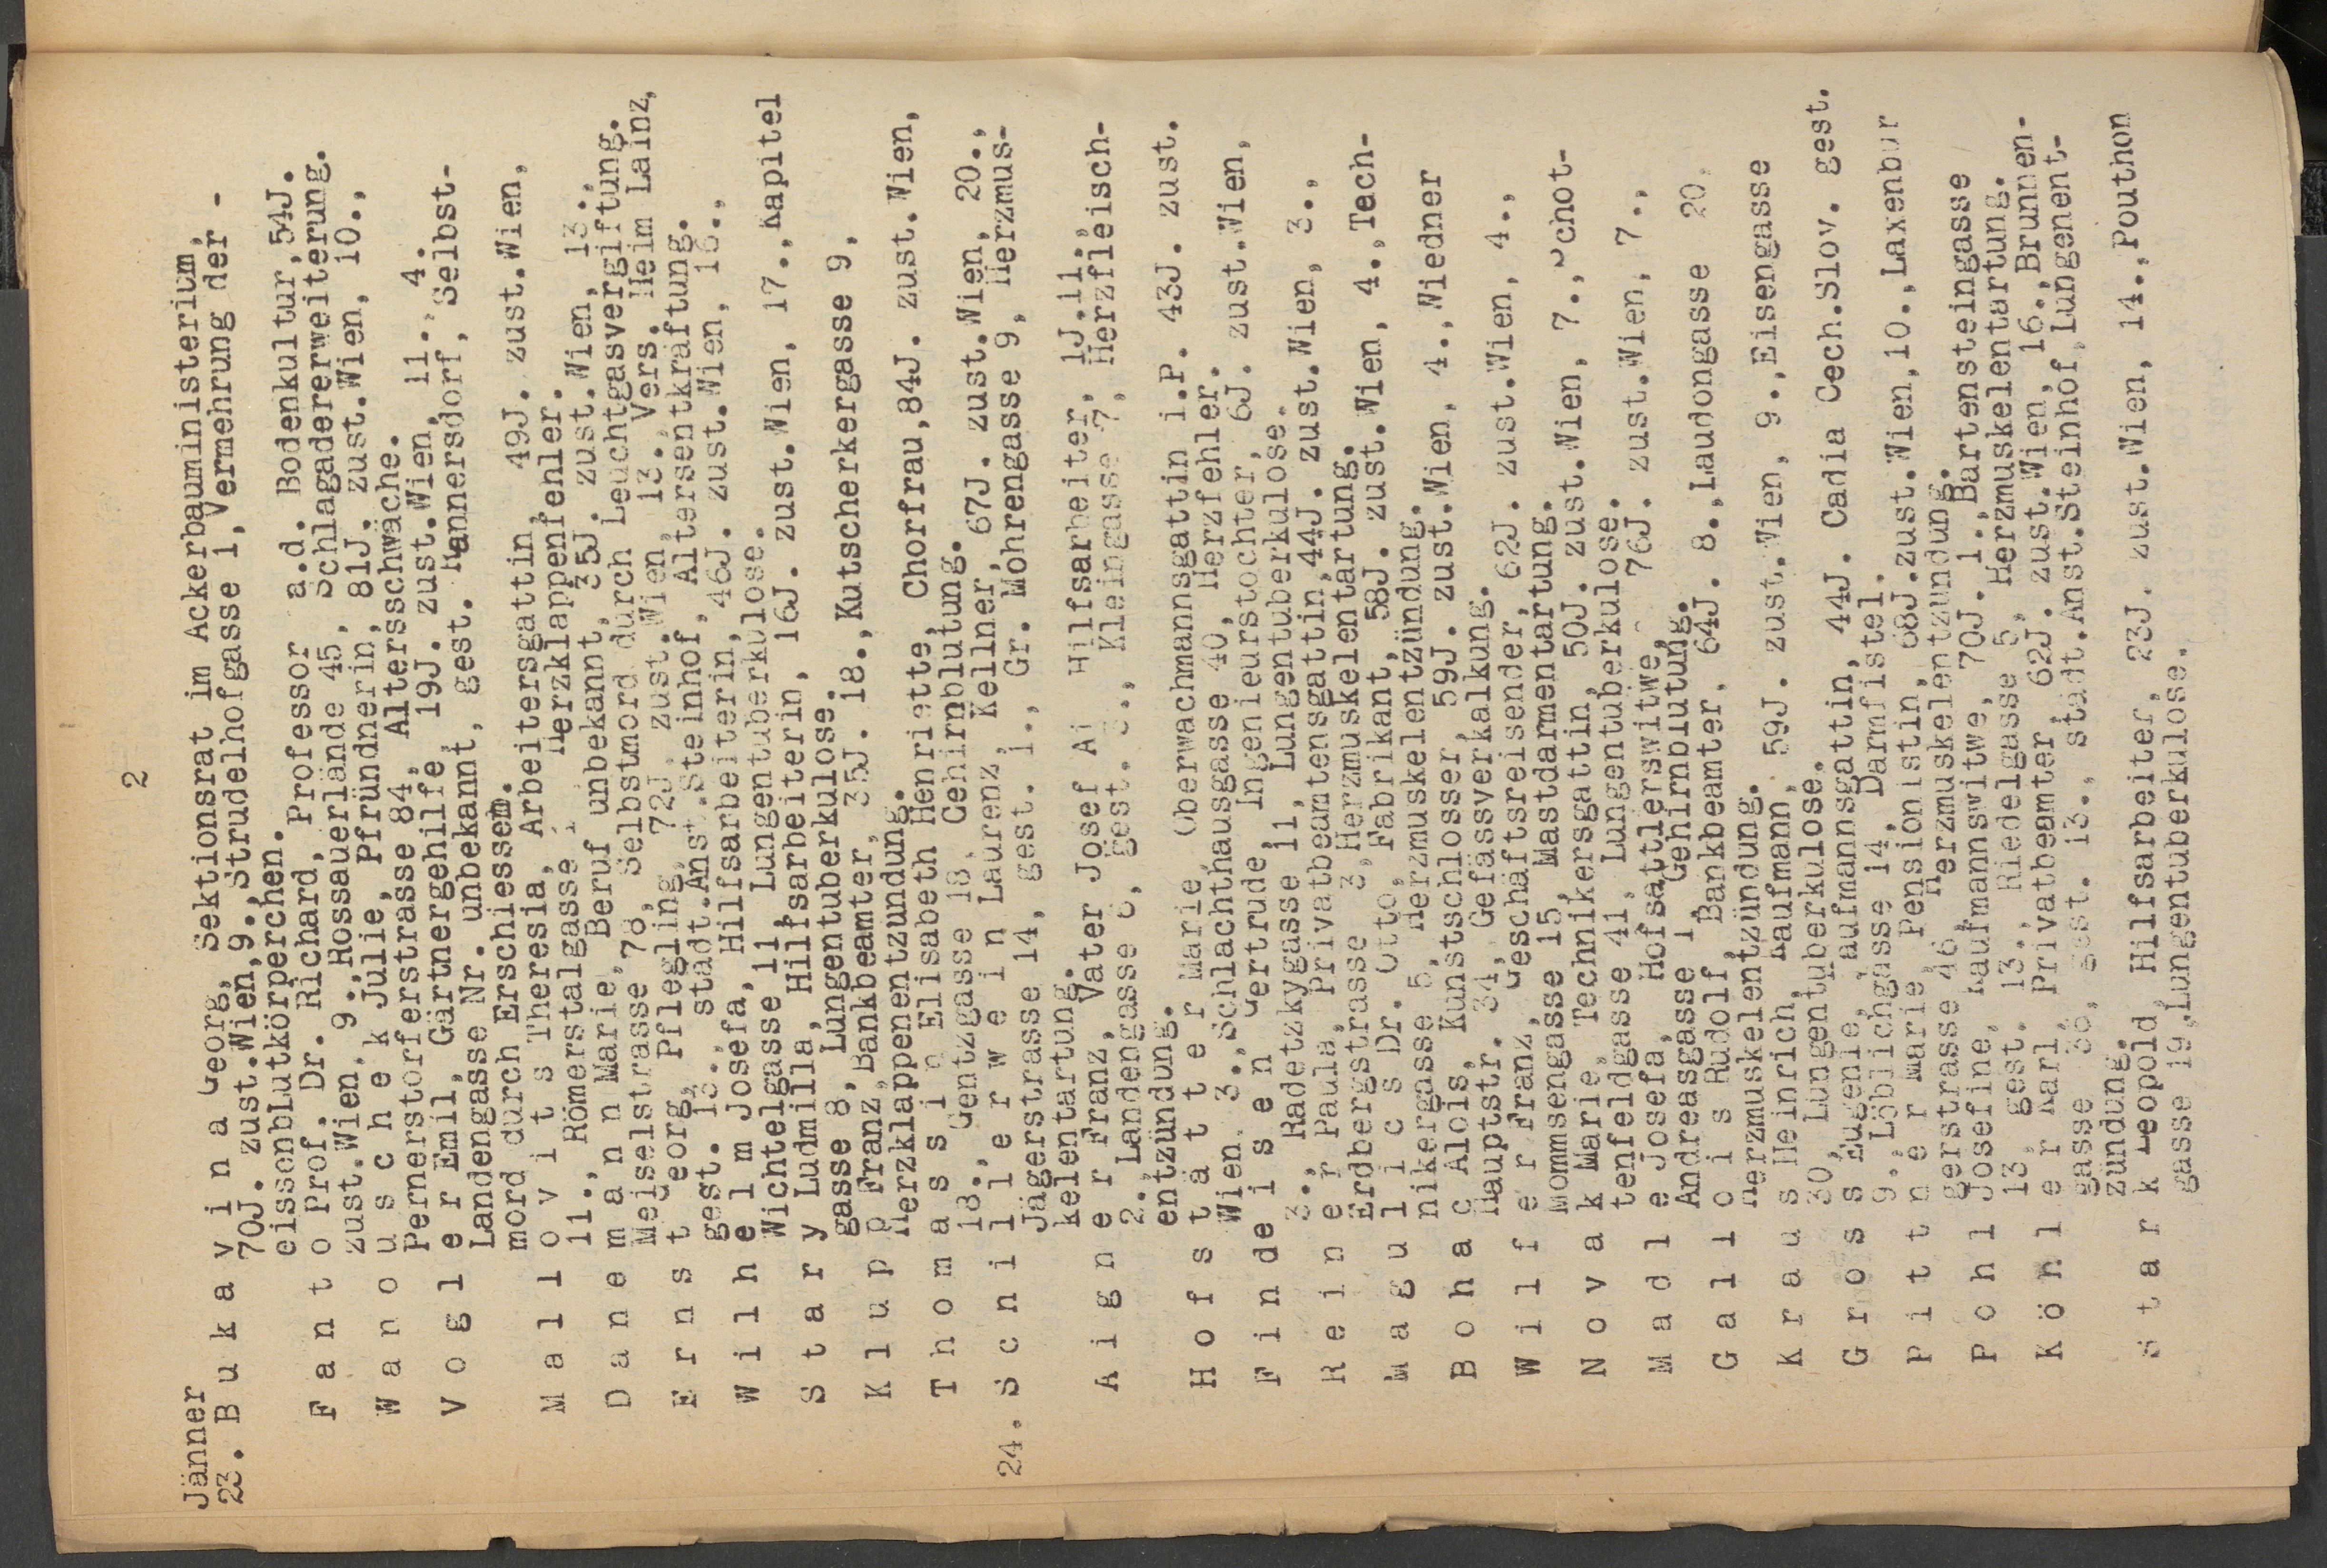 2
Jänner
23. B u k a v i n a Georg, Sektionsrat im Ackerbauministerium,
70J. zust.Wien,9.,Strudelhofgasse 1,Vermehrung der -
eissenblutkörperchen.
F a n t o Prof. Dr. Richard, Professor a.d. Bodenkultur,54J.
zust.Wien, 9.,Rossauerlände 45, Schlagadererweiterung.
W a n o u s c h e k Julie, Pfründnerin, 81J. zust.Wien, 10.,
Pernerstorferstrasse 84, Altersschwäche.
V o g l e r Emil, Gärtnergehilfe, 19J. zust.Wien, 11., 4.
Landengasse Nr. unbekannt, gest. Mannersdorf, Selbst-
mord durch Erschiessem.
M a l l o v i t s Theresia, Arbeitersgattin, 49J. zust.Wien,
11., Römerstalgasse Herzklappenfehler.
D a n e m a n n Marie, Beruf unbekannt, 35J. zust.Wien, 13.,
Meiselstrasse 78, Selbstmord durch Leuchtgasvergiftung.
E r n s t Georg, Pflegling, 72J. zust.Wien, 13., Vers. Heim Lainz,
gest. 13., städt.Anst.Steinhof, Altersentkräftung.
W i l h e l m Josefa, Hilfsarbeiterin, 46J. zust.Wien, 16.,
Wichtelgasse 11, Lungentuberkulose.
S t a r y Ludmilla, Hilfsarbeiterin, 16J. zust.Wien, 17.,Kapitel
gasse 8, Lungentuberkulose.
K l u p p Franz,Bankbeamter, 35J. 18.,Kutscherkergasse 9,
Herzklappenentzündung.
T h o m a s s i n Elisabeth Henriette, Chorfrau,84J. zust.Wien,
18., Gentzgasse 18, Gehirnblutung.
24. S c h i l l e r w e i n Laurenz, Kellner, 67J. zust.Wien, 20.,
Jägerstrasse 14, gest. 1., Gr. Mohrengasse 9, Herzmus-
kelentartung.
A i g n e r Franz, Vater Josef Ai Hilfsarbeiter, 1J.11.,
2. Landengasse 6, gest. Kleingasse 7, Herzfleisch-
entzündung.
H o f s t ä t t e r Marie, Oberwachmannsgattin i.P. 43J. zust.
Wien, 3.,Schlachthausgasse 40, Herzfehler.
F i n d e i s e n Gertrude, Ingenieurstochter, 6J. zust.Wien,
3., Radetzkygasse 11, Lungentuberkulose.
R e i n e r Paula, Privatbeamtensgattin,44J. zust.Wien, 3.,
Erdbergstrasse 3,Herzmuskelentartung.
M a g u l i c s Dr. Otto, Fabrikant, 58J. zust.Wien, 4.,Tech-
nikergasse 5, Herzmuskelentzündung.
B o h a c Alois, Kunstschlosser, 59J. zust.Wien, 4.,Wiedner
Hauptstr. 34, Gefässverkalkung.
W i l f e r Franz, Geschäftsreisender, 62J. zust.Wien, 4.,
Mommsengasse 15, Mastdarmentartung.
N o v a k Marie, Technikersgattin, 50J. zust.Wien, 7.,Schot-
tenfeldgasse 41, Lungentuberkulose.
M a d l e Josefa, Hofsattlerswitwe, 76J. zust.Wien, 7.,
Andreasgasse 1 Gehirnblutung.
G a l l o i s Rudolf, Bankbeamter, 64J. 8.,Laudongasse 20,
Herzmuskelentzündung.
K r a u s Heinrich, Kaufmann, 59J. zust.Wien, 9.,Eisengasse
30, Lungentuberkulose.
G r o s s Eugenie, Kaufmannsgattin, 44J. Cadia Cech.Slov. gest.
9., Löblichgasse 14, Darmfistel.
P i t t n e r Marie, Pensionistin, 68J.zust.Wien,10.,Laxenbur
gerstrasse 46, Herzmuskelentzündung.
P o h l Josefine, Kaufmannswitwe, 70J. 1.,Bartensteingasse
13, gest. 13., Riedelgasse 5, Herzmuskelentartung.
K ö h l e r Karl, Privatbeamter, 62J. zust.Wien, 16.,Brunnen-
gasse 36, gest. 13., städt.Anst.Steinhof,Lungenent-
zündung.
S t a r k Leopold, Hilfsarbeiter, 23J. zust.Wien, 14.,Pouthon
gasse 19,Lungentuberkulose.